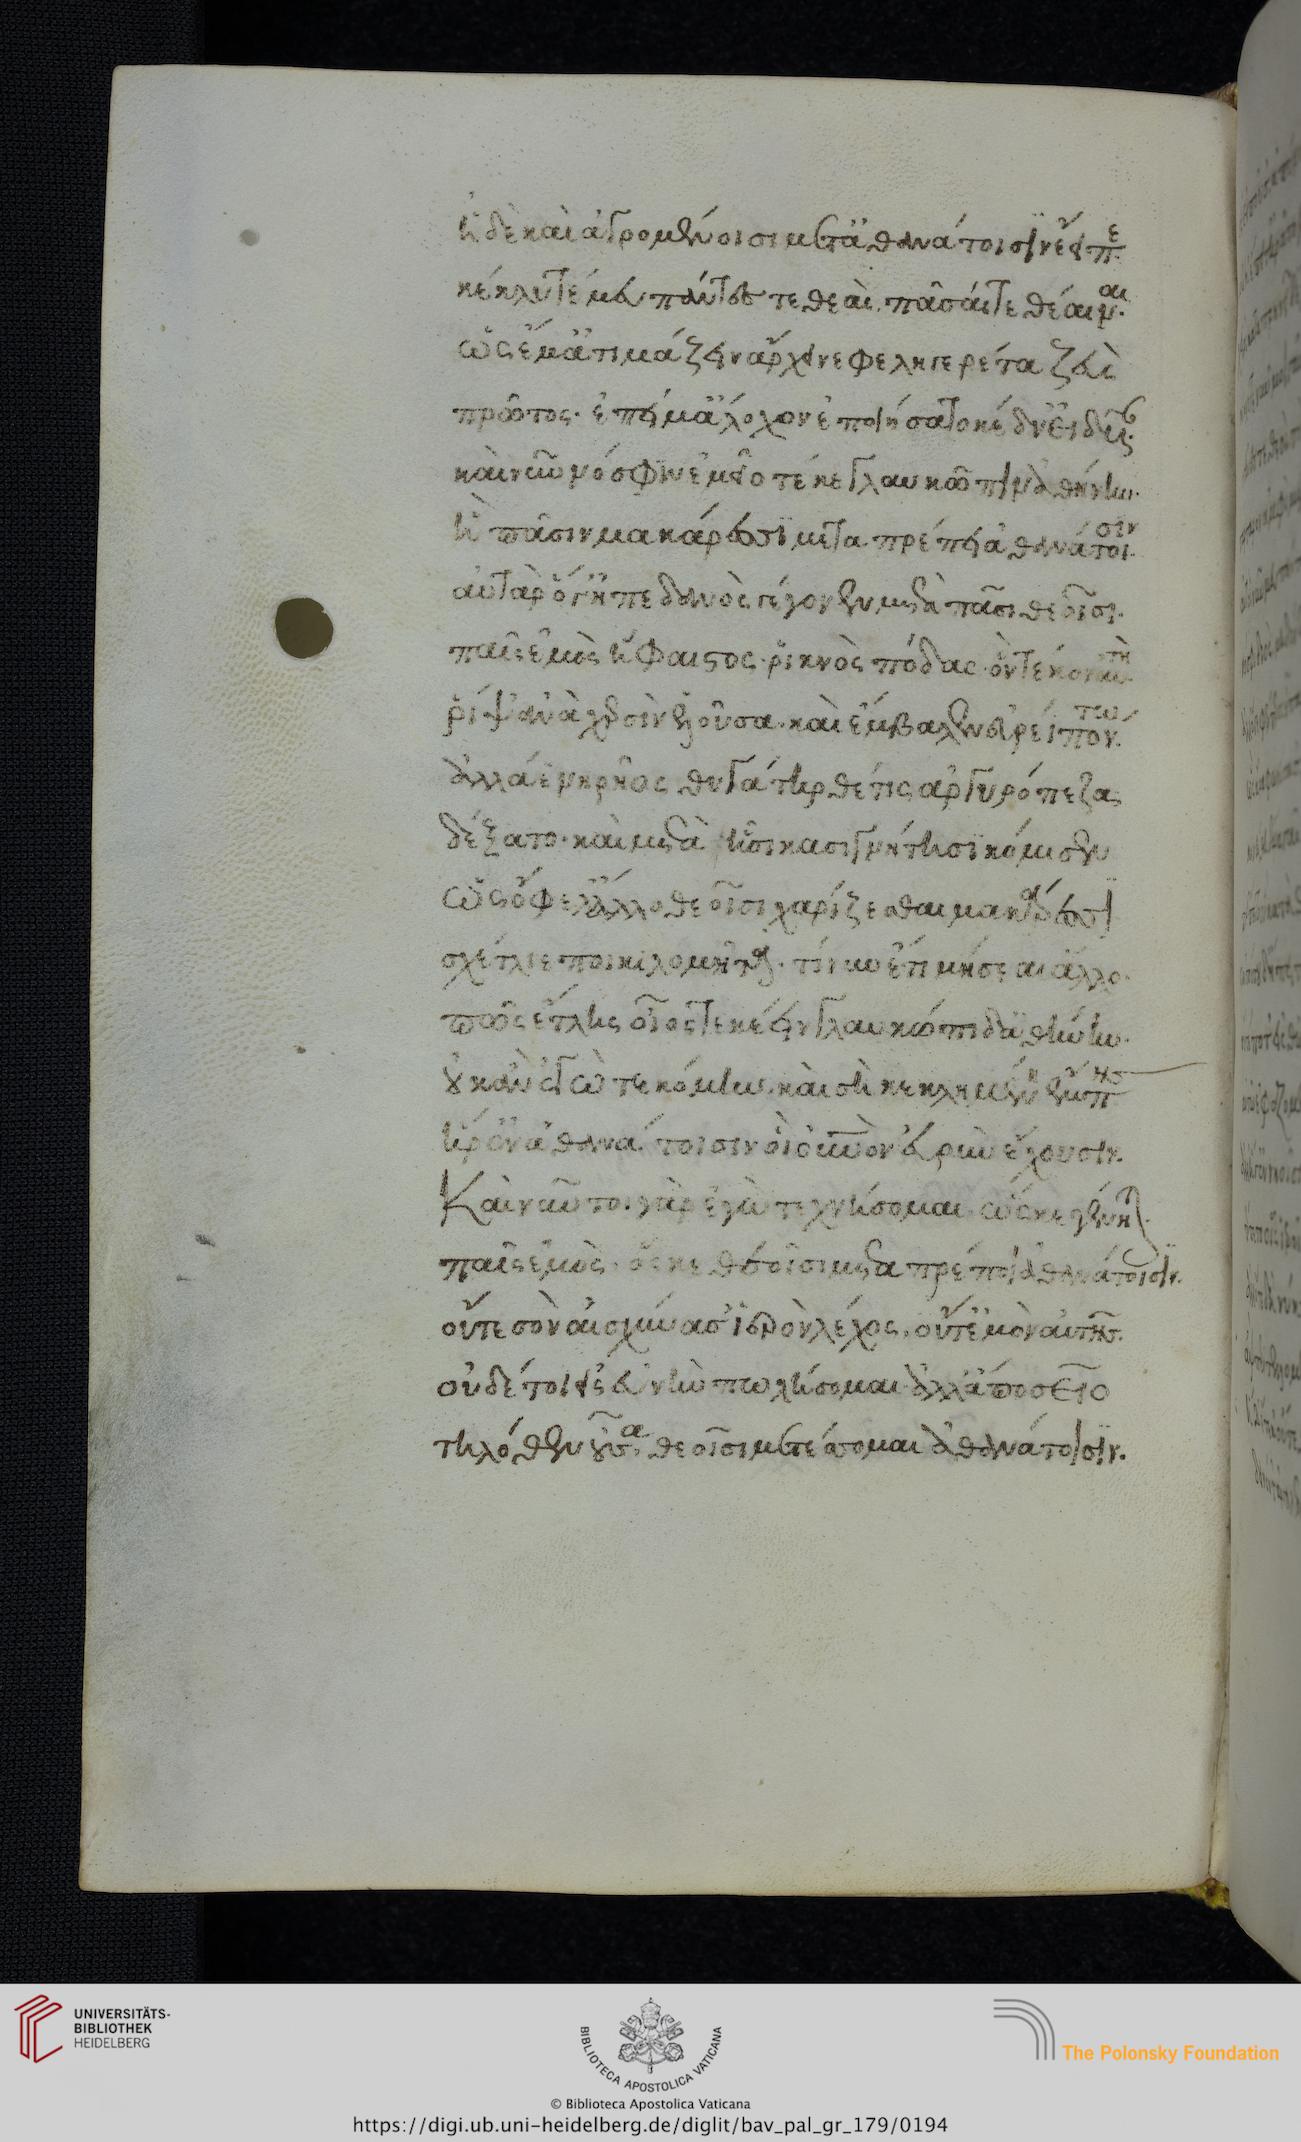 ἡ δὲ καὶ ἀγρομένοισι μετ' ἀθανάτοισιν ἔειπε
κέκλυτέ μευ πάντες τε θεοὶ πᾶσαί τε θέαιναι.
ὡς ἔμ' ἀτιμάζειν ἄρχει νεφεληγερέτα ζεὺς
πρῶτος. ἐπεί μ' ἄλοχον ἐποιήσατο κέδν' εἰδυῖαν.
καὶ νῦν νόσφιν ἐμεῖο τέκε γλαυκώπιν ἀθήνην.
ἣ πᾶσιν μακάρεσσι μεταπρέπει ἀθανάτοισιν
αὐτὰρ ὅγ' ἠπεδανὸς γέγονεν μετὰ πᾶσι θεοῖσι.
παῖς ἐμὸς ἥφαιστος. ῥικνὸς πόδας. ὃν τέκον αὐτὴ
ῥίψ' ἀνὰ χερσὶν ἑλοῦσα. καὶ ἔμβαλεν εὐρέι πόντω
ἀλλά ἑ νηρῆος θυγάτηρ θέτις ἀργυρόπεζα
δέξατο. καὶ μετὰ ᾗσι κασιγνήτησι κόμισεν
ὡς ὄφελ' ἄλλο θεοῖσι χαρίζεσθαι μακάρεσσι
σχέτλιε ποικιλομῆτα. τί νῦν ἔτι μήσεαι ἄλλο.
πῶς ἔτλης οἶος τεκέειν γλαυκώπιδ' ἀθήνην.
οὐκ ἂν ἐγὼ τεκόμην. καὶ σὴ κεκλημένη ἔμπης
ἦρ' ἐν ἀθανάτοισιν οἳ οὐρανὸν εὐρὺν ἔχουσιν.
Καὶ νῦν τοι γὰρ ἐγὼ τεχνήσομαι. ὥς κε γένηται
παῖς ἐμὸς. ὅς κε θεοῖσι μεταπρέποι ἀθανάτοισιν.
οὔτε σὸν αἰσχύνασ' ἱερὸν λέχος. οὔτ' ἐμὸν αὐτῆς.
οὐδέ τοι εἰς εὐνὴν πωλήσομαι. ἀλλ' ἀπὸ σεῖο
τηλόθεν οὖσα. θεοῖσι μετέσομαι ἀθανάτοισιν.
UNIVERSITÄTS-
BIBLIOTHEK
HEIDELBERG
BIBLIOTECA APOSTOLICA VATICANA
The Polonsky Foundation
© Biblioteca Apostolica Vaticana
https://digi.ub.uni-heidelberg.de/diglit/bav_pal_gr_179/0194